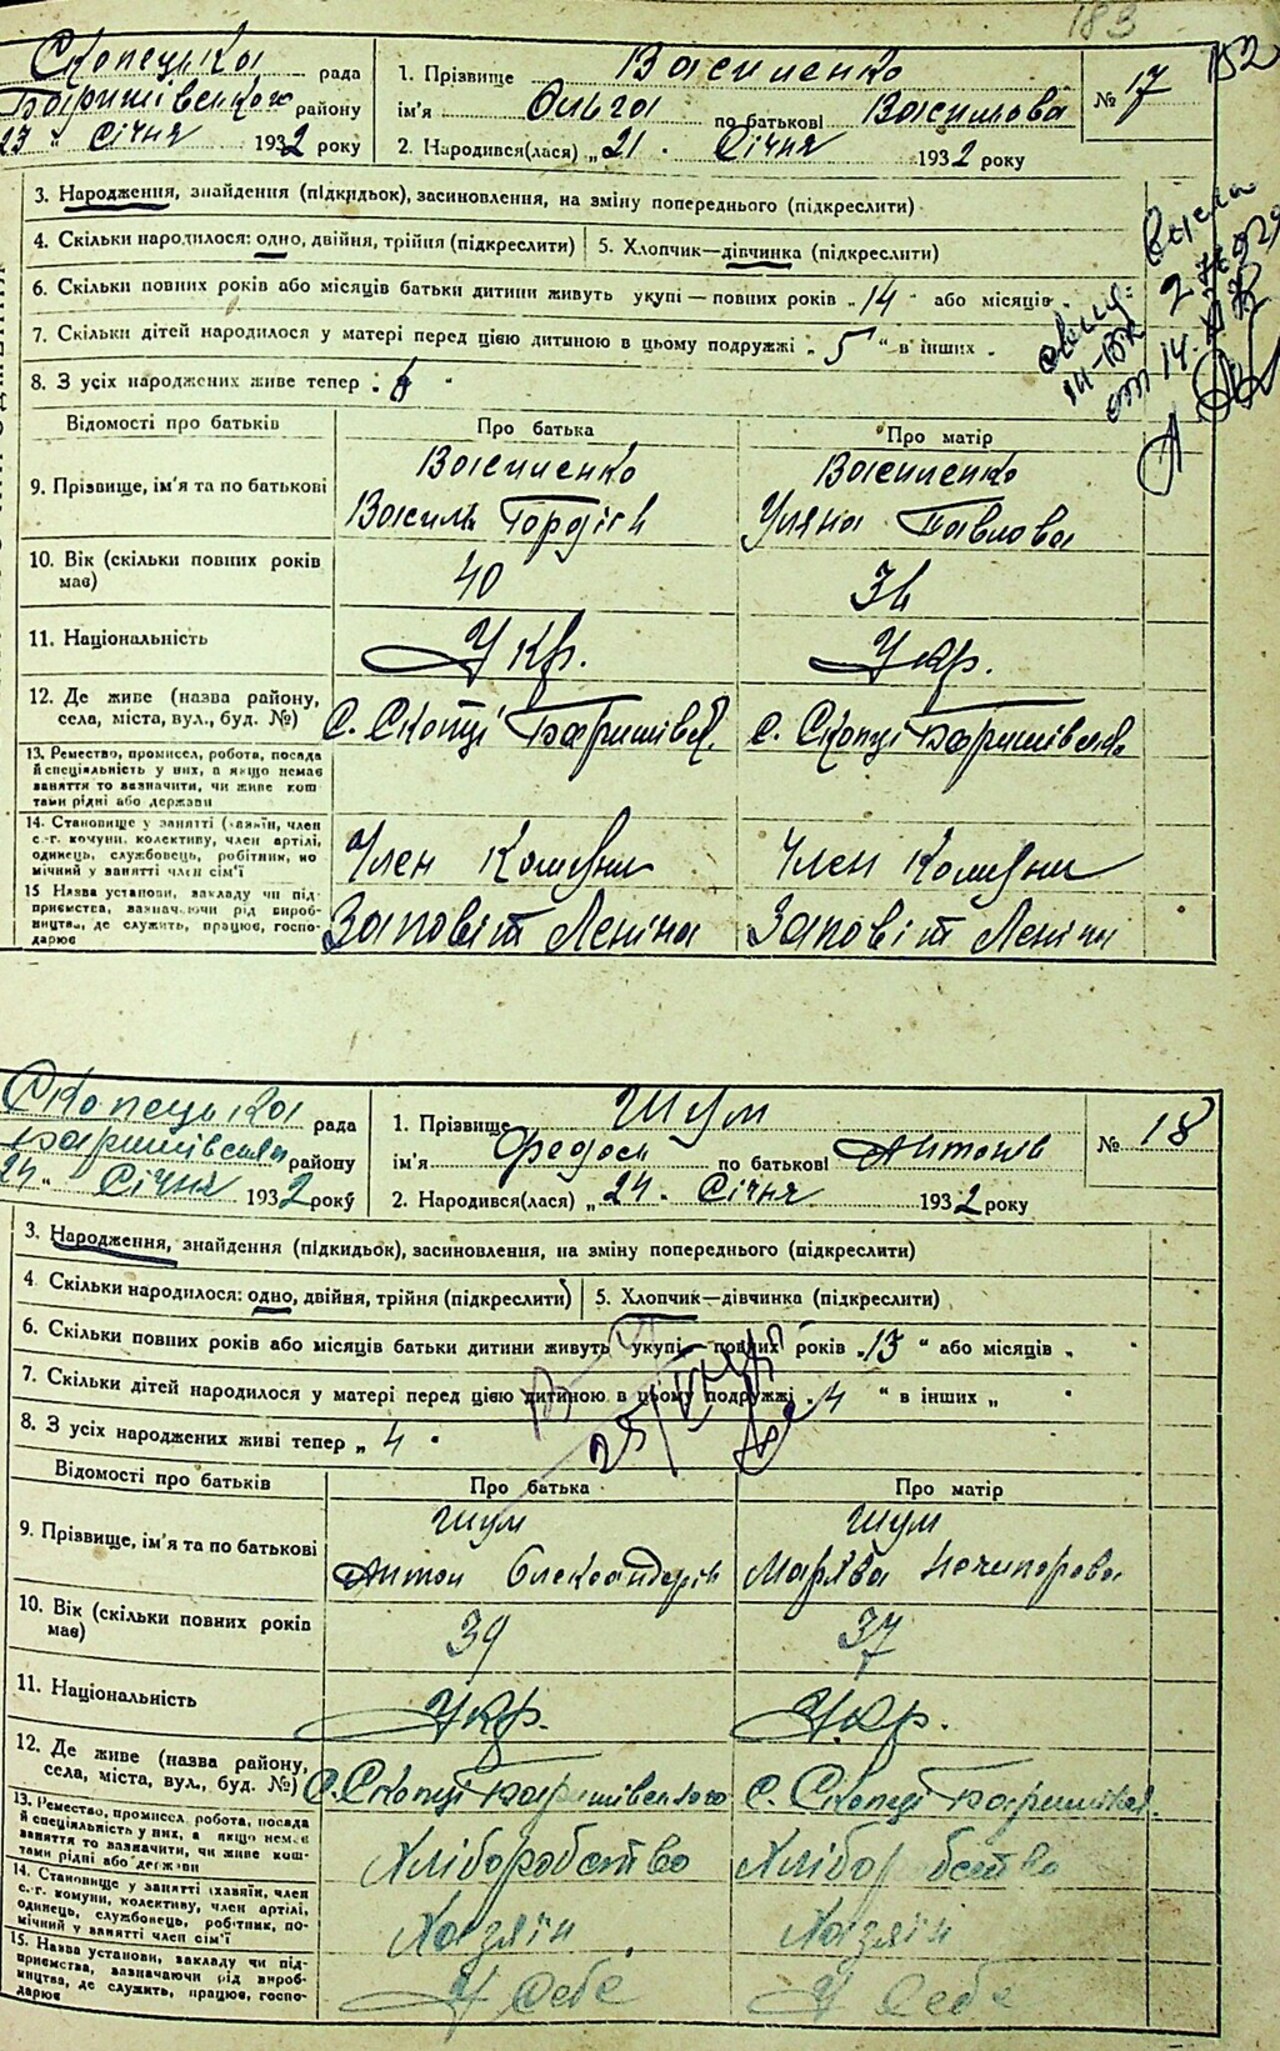 183
152
Скопецька рада
Баришівського району
23 „ Січня 1932 року
1. Прізвище Василенко
ім'я Ольга по батькові Василова
2. Народився(лася) „ 21 . Січня 1932 року
№ 17
3. Народження, знайдення (підкидьок), засиновлення, на зміну попереднього (підкреслити)
4. Скільки народилося: одно, двійня, трійня (підкреслити) 5. Хлопчик—дівчинка (підкреслити)
6. Скільки повних років або місяців батьки дитини живуть укупі — повних років „ 14 " або місяців „
7. Скільки дітей народилося у матері перед цією дитиною в цьому подружжі „ 5 " в інших „
8. З усіх народжених живе тепер „ 6 "
от 14.
Відомості про батьків Про батька Про матір
9. Прізвище, ім'я та по батькові
Василенко Василенко
Василь Гордієв Уляна Павлова
10. Вік (скільки повних років має) 40 36
11. Національність Укр. Укр.
12. Де живе (назва району, села, міста, вул., буд. №) с. Скопці Баришівськ. с. Скопці Баришівська
13. Ремество, промисел, робота, посада
й спеціальність у них, а якщо немає
заняття то вазначити, чи живе кош
тами рідні або держави
14. Становище у занятті (хазяїн, член
с.-г. комуни, колективу, член артілі,
одинець, службовець, робітник, по
мічний у занятті член сім'ї
Член Комуни Член Комуни
15 Назва установи, закладу чи під-
приємства, вазначаючи рід вироб-
ництва, де служить, працює, госпо-
дарює
Заповіт Леніна Заповіт Леніна
Скопецька рада
Баришівського району
24 „ Січня 1932 року
1. Прізвище Шум
ім'я Федось по батькові Антонів
2. Народився(лася) „ 24 . Січня 1932 року
№ 18
3. Народження, знайдення (підкидьок), засиновлення, на зміну попереднього (підкреслити)
4 Скільки народилося: одно, двійня, трійня (підкреслити) 5. Хлопчик—дівчинка (підкреслити)
6. Скільки повних років або місяців батьки дитини живуть укупі — повних років „ 13 " або місяців „ "
7. Скільки дітей народилося у матері перед цією дитиною в цьому подружжі „ 4 " в інших „ "
8. З усіх народжених живі тепер „ 4 "
Відомості про батьків Про батька Про матір
9. Прізвище, ім'я та по батькові
Шум Шум
Антон Олександрів Марїва Нечипорова
10. Вік (скільки повних років має) 39 37
11. Національність Укр. Укр.
12. Де живе (назва району, села, міста, вул., буд. №) с. Скопці Баришівського с. Скопці Баришівськ.
13. Ремество, промисел, робота, посада
й спеціальність у них, а якщо немає
заняття то вазначити, чи живе кош-
тами рідні або держави
Хліборобство Хлібор бство
14. Становище у занятті (хазяїн, член
с.-г. комуни, колективу, член артілі,
одинець, службовець, робітник, по-
мічний у занятті член сім'ї
Хазяїн Хазяїн
15. Назва установи, закладу чи під-
приємства, вазначаючи рід вироб-
ництва, де служить, працює, госпо-
дарює
У себе У себе